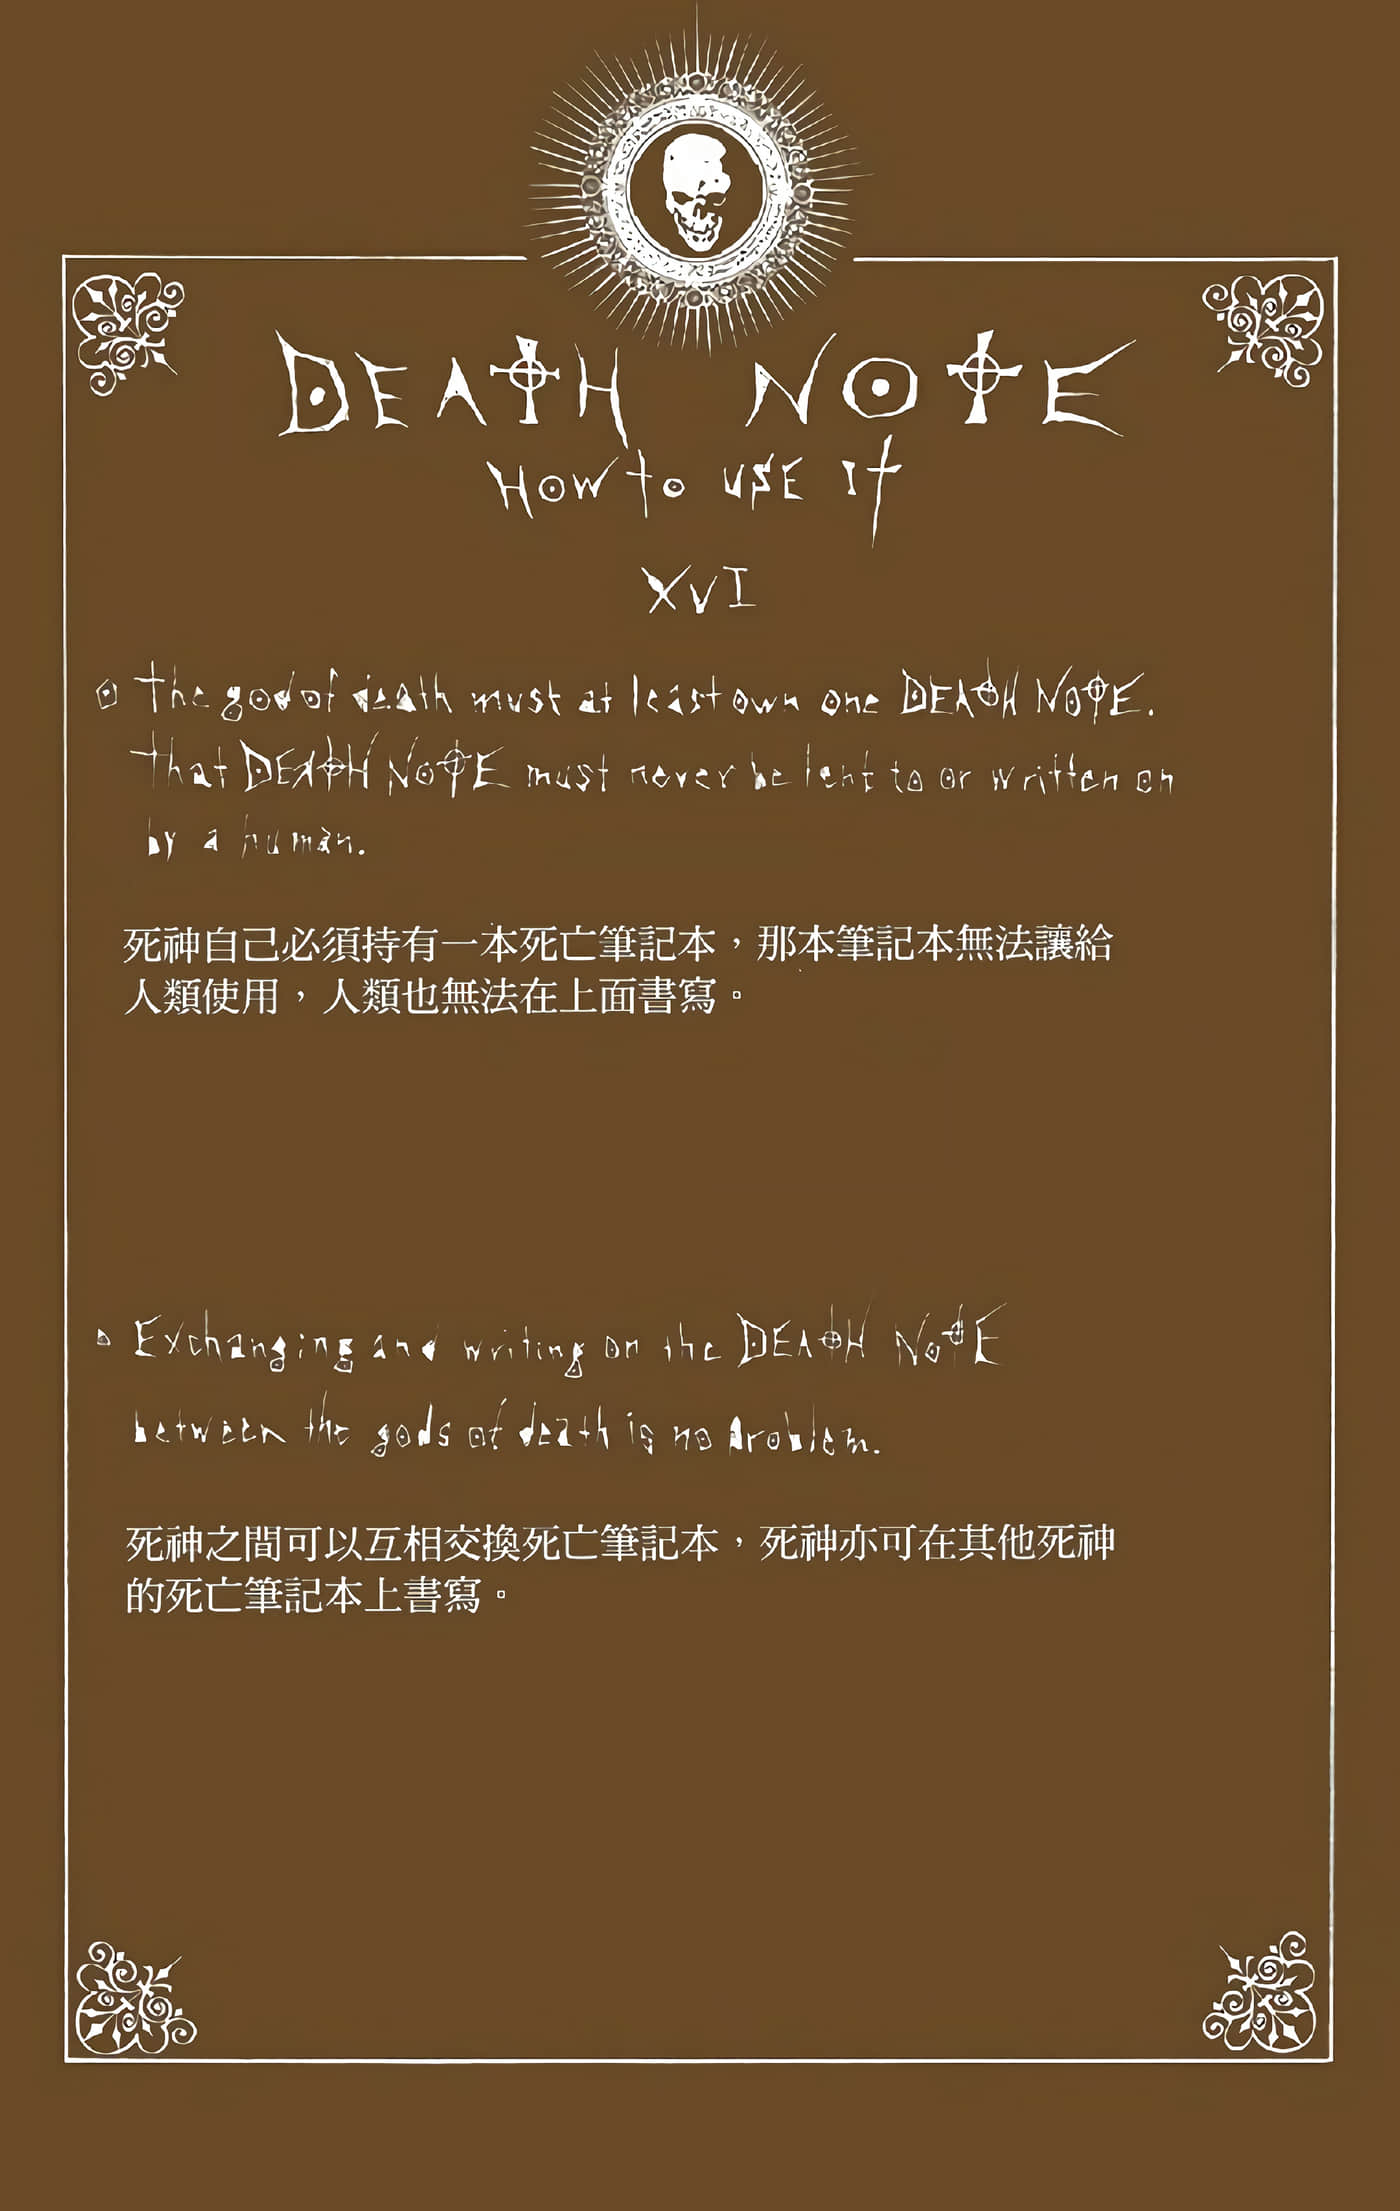 DEATH NOTE
HOW to USE It
XVI
The god of death must at least own one DEATH NOTE.
That DEATH NOTE must never be lent to or written on
by a human.
死神自己必須持有一本死亡筆記本，那本筆記本無法讓給
人類使用，人類也無法在上面書寫。
Exchanging and writing on the DEATH NOTE
between the gods of death is no problem.
死神之間可以互相交換死亡筆記本，死神亦可在其他死神
的死亡筆記本上書寫。